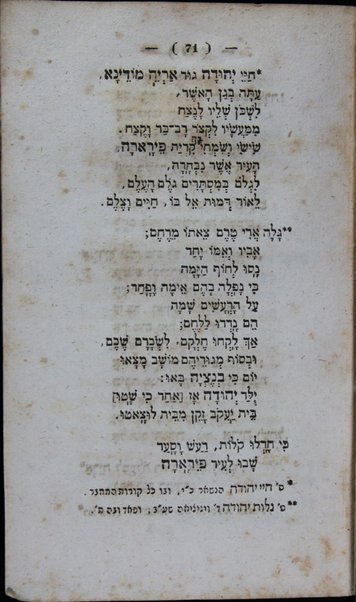 — ( 71 ) —
*חַיֵּי יְהוּדָה גּוּר אַרְיֵה מוֹדֵינָא,
עַתָּה בְּגַן הָאֹשֶׁר,
לִשְׁכֹּן שָׁלֵיו לָנֶצַח
מִמַּעֲשָׂיו לִקְצֹר רָב־בַּר וָקֶצַח.
שִׂישִׂי וְשִׂמְחִי קִרְיַת פֵירָארָה,
הָעִיר אֲשֶׁר נִבְחָרָה,
לִגְלֹם בְּמִסְתָּרִים גֹּלֶם הָעֶלֶם,
לֵאוֹר דְּמוּת אֵל בּוֹ, חַיִּים וָצֶלֶם.
**גָּלָה אֲרִי טֶרֶם צֵאתוֹ מֵרֶחֶם;
אָבִיו וְאִמּוֹ יַחַד
נָסוּ לְחוֹף הַיָּמָּה
כִּי נָפְלָה בָהֶם אֵימָה וָפַחַד;
עַל הָרְעָשִׁים שָׁמָּה
הֵם נָדְדוּ לַלֶּחֶם;
אַךְ לָקְחוּ חֶלְקָם, לִשְׂכָרָם שֶׁכֶם,
וּבְסוֹף מְגוּרֵיהֶם מוֹשָׁב מָצָאוּ
יוֹם כִּי בְוֵנֶצְיָה בָּאוּ:
יֻלַּד יְהוּדָה אָז וְאַחַר כִּי שָׁטָטוּ
בֵּית יַעֲקֹב זָקֵן מִבֵּית לוּצָאטוּ.
כִּי חָדְלוּ קֹלוֹת, רַעַשׁ וָסַעַר
שָׁבוּ לְעִיר פֵירָארָה
* ס' חיי יהודה הנשאר כ"י, ובו כל קורות המחבר.
**ס' גלות יהודה ד' וויניציאה שע"ב, ופאדובה ת'.